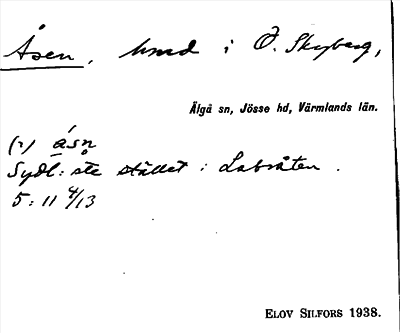 Åsen, hmd i Ö. Skyberg,
Älgå sn, Jösse hd, Värmlands län.
(1) ásn̥
Sydl:ste stället i Labråten.
5:11 4/13
ELOV SILFORS 1938.